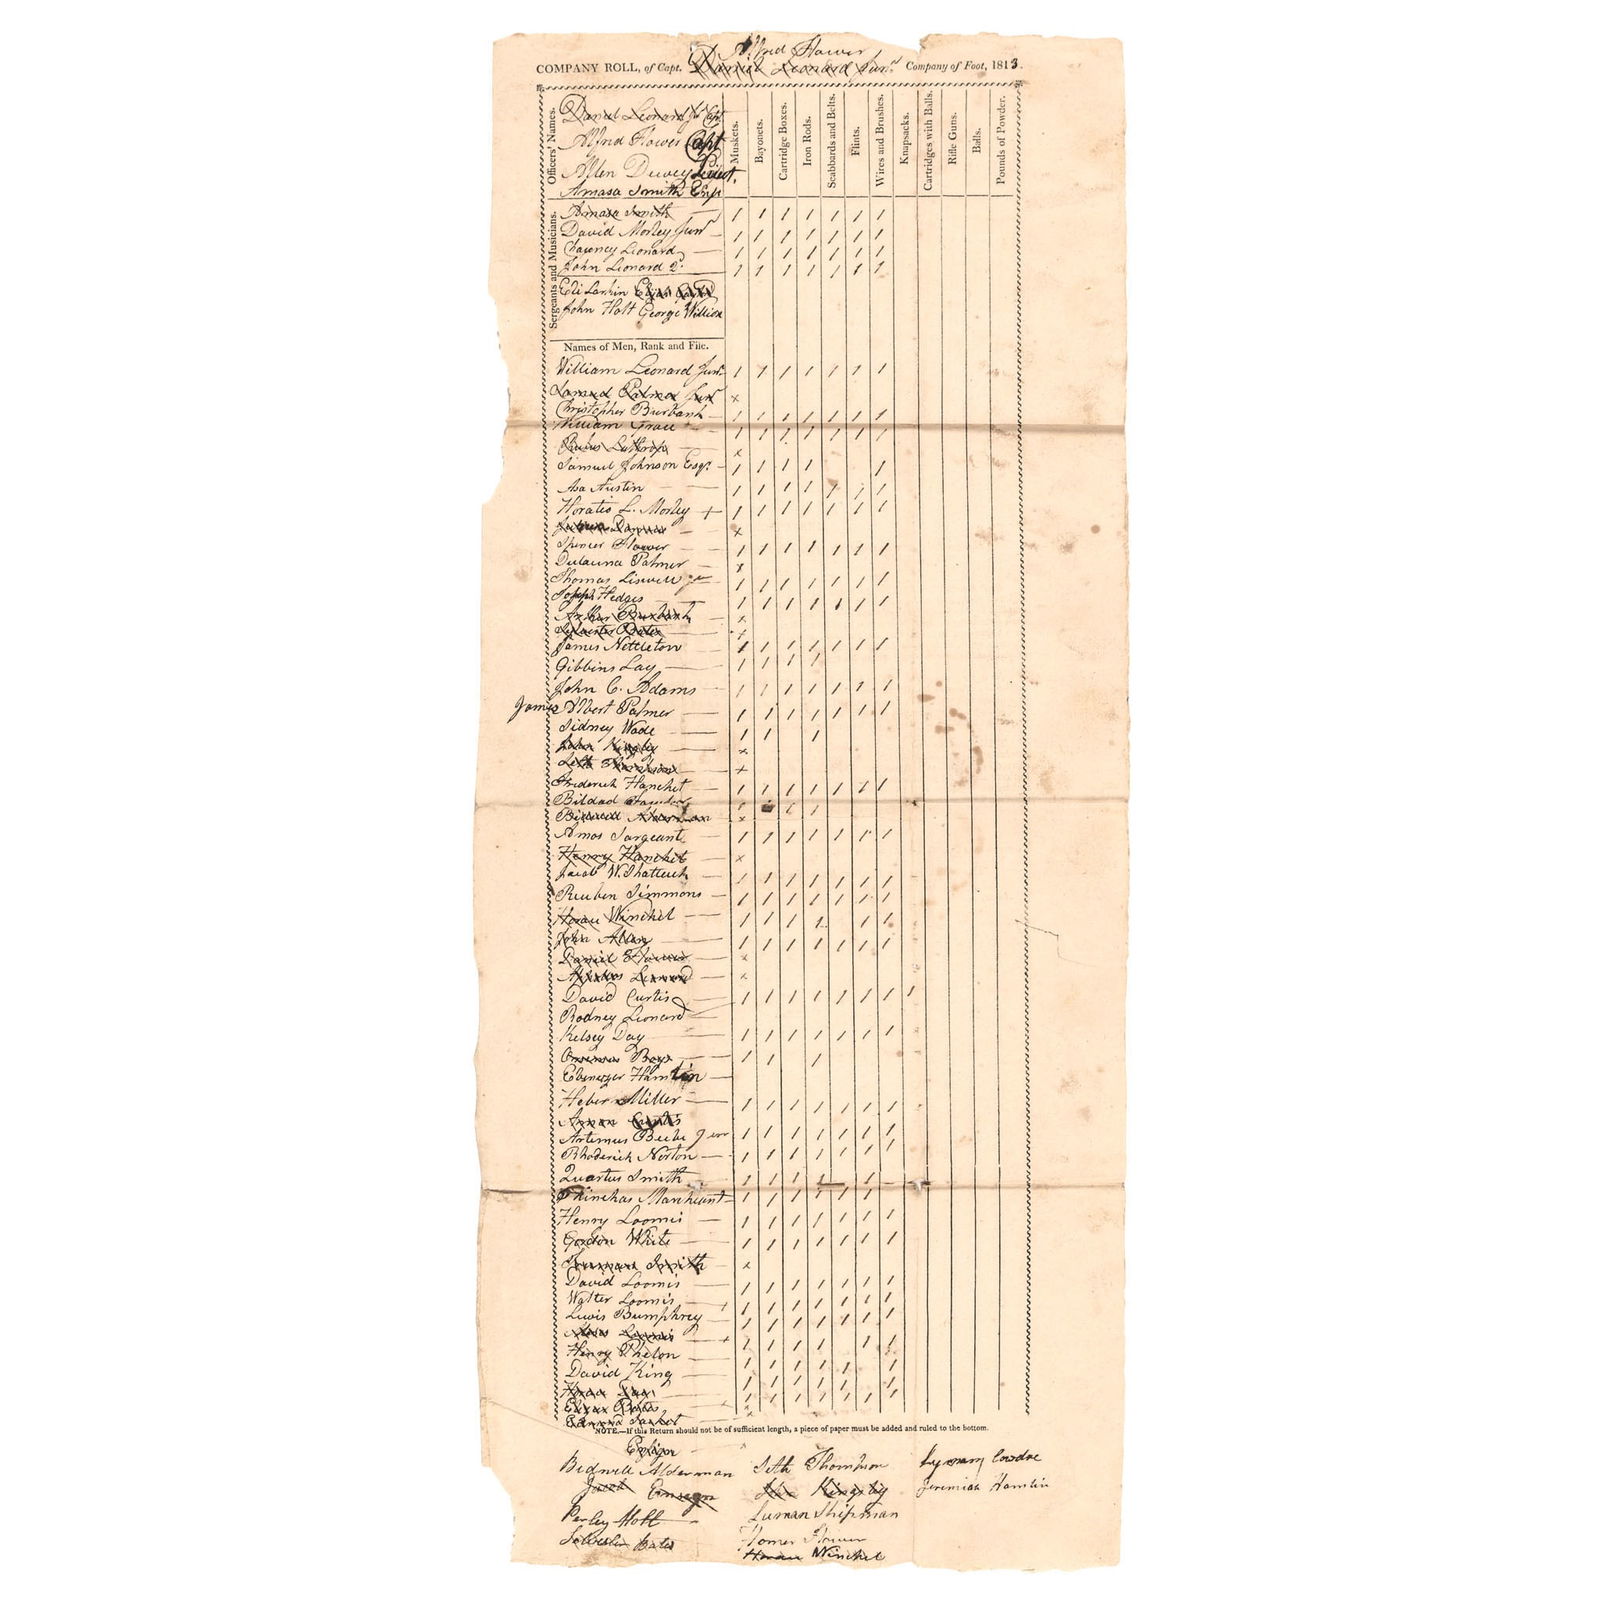 Alfred Flower
COMPANY ROLL, of Capt. Daniel Leonard Junr Company of Foot, 1813.
Officers' Names.
Daniel Leonard Jr Capt
Alfred Flower Capt
Allen Dewey Lieut.
Amasa Smith Ens
Muskets.
Bayonets.
Cartridge Boxes.
Iron Rods.
Scabbards and Belts.
Flints.
Wires and Brushes.
Knapsacks.
Cartridges with Balls.
Rifle Guns.
Balls.
Pounds of Powder.
Sergeants and Musicians.
Amasa Smith
David Morley Junr
Chauncy Leonard
John Leonard 2d
Eli Larkin
John Holt George Willson
Names of Men, Rank and File.
William Leonard Junr
Palmer Junr
Christopher Burbank
William Grace
Rufus Lathrop
Samuel Johnson Esqr
Asa Austin
Horatio L. Morley +
Spencer Flower
Palmer
Thomas Liswell Jr
Joseph Hedges
Arthur Burbank
Sylvester Bates
James Nettleton
Gibbins Lay
John C. Adams
James Albert Palmer
Sidney Wade
John Kingsley
Seth Thompson
Frederick Hanchet
Bildad
Bidwell Alderman
Amos Sargeant
Henry Hanchet
Jacob W. Shattuck
Reuben Simmons
Horace Winchel
John Allen
Daniel Flower
Leonard
David Curtis
Rodney Leonard
Kelsey Day
Ebenezer Hamlin
Heber Miller
Curtis
Artemus Beebe Junr
Rhoderick Norton
Quartus Smith
Phinehas Marchant
Henry Loomis
Gordon White
Smith
David Loomis
Walter Loomis
Lewis Bumphrey
Loomis
Henry Phelon
David King
Horace Day
Bates
NOTE.—If this Return should not be of sufficient length, a piece of paper must be added and ruled to the bottom.
Bidwell Alderman Seth Thompson Lyman Cowdre
Jacob Kingsley Jeremiah Hamlin
Perley Holt Luman Shipman
Silvester Bates Homer Flower
Horace Winchel